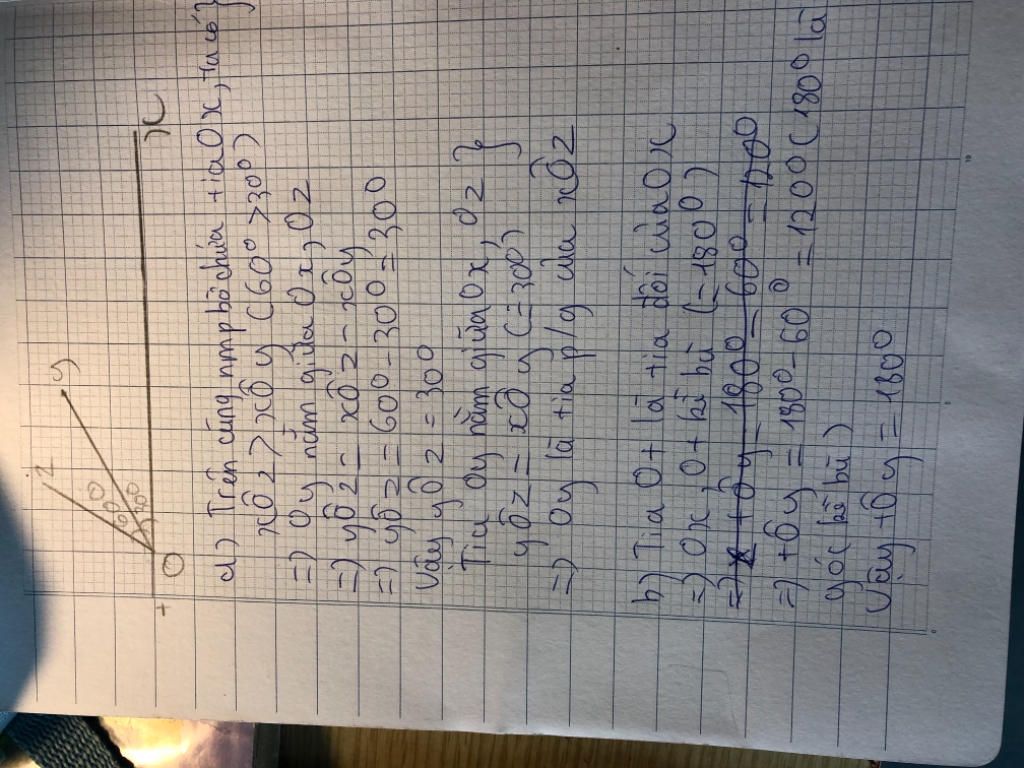 z
y
60°
30°
t
O
x
a) Trên cùng nmp bờ chứa tia Ox, ta có }
xÔz > xÔy (60° > 30°)
=) Oy nằm giữa Ox, Oz
=) yÔz = xÔz - xÔy
=) yÔz = 60° - 30° = 30°
Vậy yÔz = 30°
Tia Oy nằm giữa Ox, Oz }
yÔz = xÔy (= 30°)
=) Oy là tia p/g của xÔz
b) Tia Ot là tia đối của Ox
=) Ox, Ot kề bù (= 180°)
=) tÔy = 180° - 60° = 120°
=) tÔy = 180° - 60° = 120° (180° là
góc kề bù)
Vậy tÔy = 180°